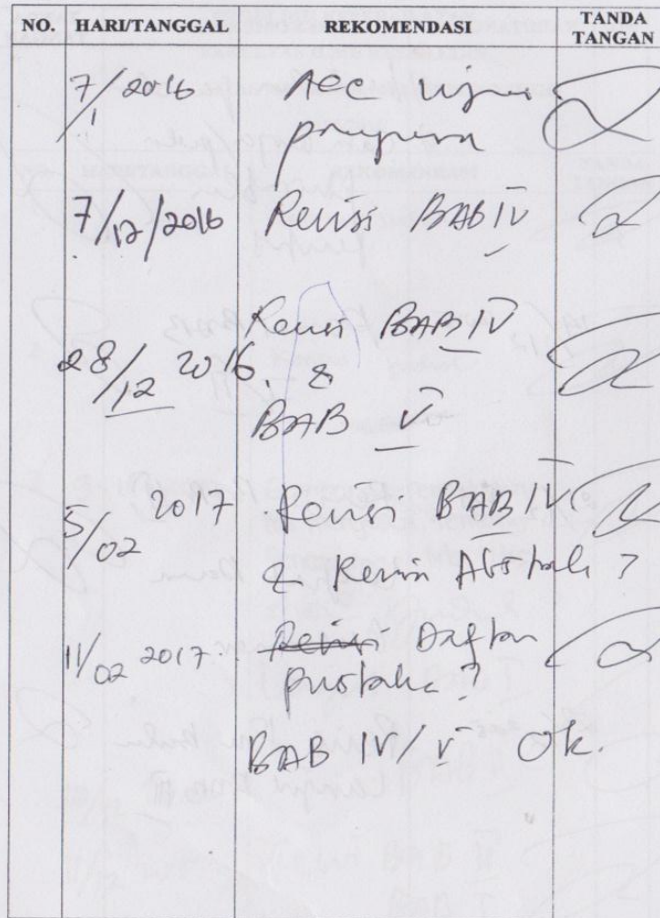 NO. HARI/TANGGAL REKOMENDASI TANDA TANGAN
7/1 2016 Acc ujian
proposal
7/12/2016 Revisi BAB IV
Revisi BAB IV
28/12 2016. &
BAB V
5/02 2017. Revisi BAB IV
& Revisi Abstrak ?
11/02 2017. Revisi Daftar
pustaka ?
BAB IV/V Ok.